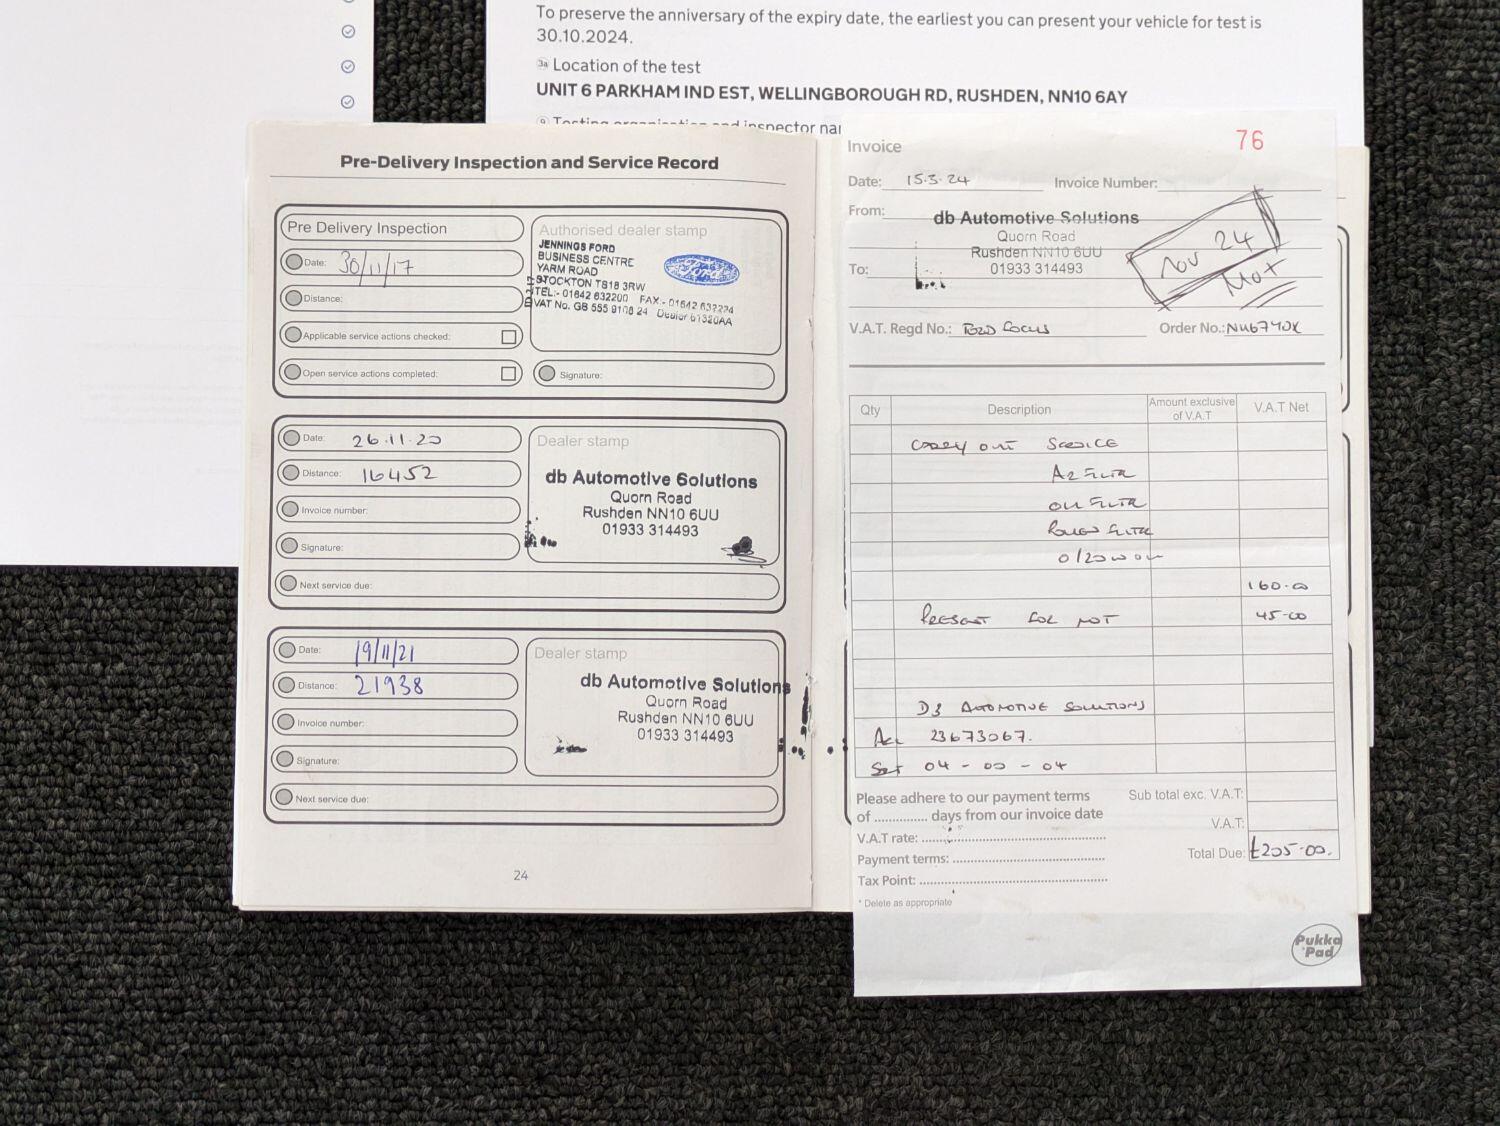 To preserve the anniversary of the expiry date, the earliest you can present your vehicle for test is
30.10.2024.
3a Location of the test
UNIT 6 PARKHAM IND EST, WELLINGBOROUGH RD, RUSHDEN, NN10 6AY
Pre-Delivery Inspection and Service Record
Pre Delivery Inspection
Date: 30/11/17
Distance:
Applicable service actions checked:
Open service actions completed:
Authorised dealer stamp
JENNINGS FORD
BUSINESS CENTRE
YARM ROAD
STOCKTON TS18 3RW
TEL:- 01642 632200 FAX:- 01642 632224
VAT No. GB 555 9108 24 Dealer 61320AA
Ford
Signature:
Date: 26.11.20
Distance: 16452
Invoice number:
Signature:
Next service due:
Dealer stamp
db Automotive Solutions
Quorn Road
Rushden NN10 6UU
01933 314493
Date: 19/11/21
Distance: 21938
Invoice number:
Signature:
Next service due:
Dealer stamp
db Automotive Solutions
Quorn Road
Rushden NN10 6UU
01933 314493
24
Invoice
76
Date: 15.3.24 Invoice Number:
From:
db Automotive Solutions
Quorn Road
Rushden NN10 6UU
01933 314493
To:
Nov 24
MOT
V.A.T. Regd No.: FORD FOCUS Order No.:
Qty Description Amount exclusive of V.A.T V.A.T Net
CARRY OUT SERVICE
AIR FILTR
OIL FILTR
POLLEN FILTR
0/20W OIL
160.00
PRESENT FOR MOT 45-00
DB AUTOMOTIVE SOLUTIONS
Acc 23673067.
Sort 04 - 00 - 04
Please adhere to our payment terms
of .............. days from our invoice date
V.A.T rate:
Payment terms:
Tax Point:
* Delete as appropriate
Sub total exc. V.A.T:
V.A.T:
Total Due: £205-00.
Pukka Pad